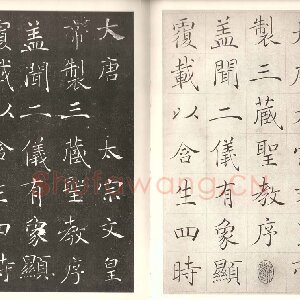 製三藏聖教序
盖聞二儀有象顯
覆載以含生四時
大唐 太宗文皇
帝製三藏聖教序
盖聞二儀有象顯
覆載以含生四時
Shufawang.CN